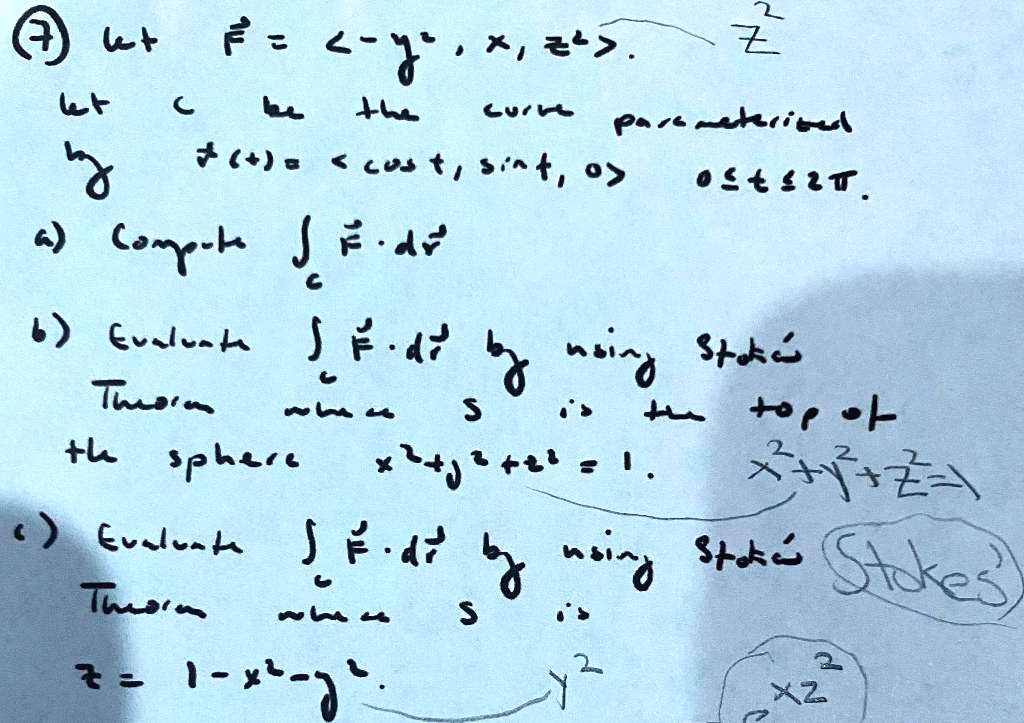 ⑦ let F⃗ = <-y², x, z²>. z²
let C be the curve parameterized
by r⃗(t) = <cos t, sin t, 0> 0 ≤ t ≤ 2π.
a) Compute ∫_C F⃗ · dr⃗
b) Evaluate ∫_C F⃗ · dr⃗ by using Stokes'
Theorem where S is the top of
the sphere x² + y² + z² = 1. x²+y²+z²=1
c) Evaluate ∫_C F⃗ · dr⃗ by using Stokes' Stokes'
Theorem where S is
z = 1 - x² - y². y² xz²